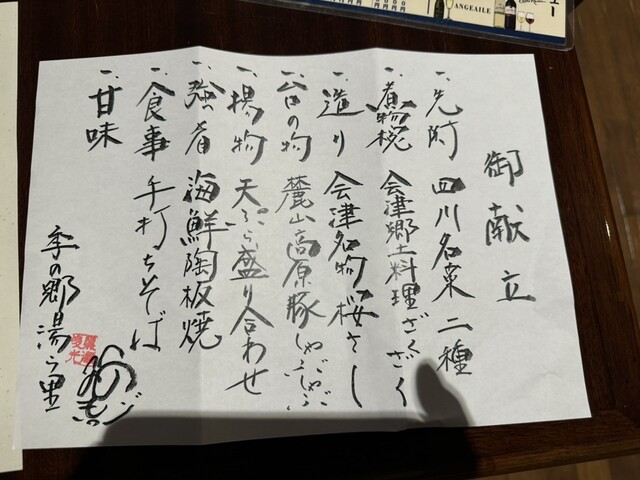 御献立
一、先附 四川名菜 二種
一、煮物椀 会津郷土料理ざくざく
一、造り 会津名物桜さし
一、台の物 麓山高原豚しゃぶしゃぶ
一、揚物 天ぷら盛り合わせ
一、強肴 海鮮陶板焼
一、食事 手打ちそば
一、甘味
季の郷湯ら里
ANGEAILE